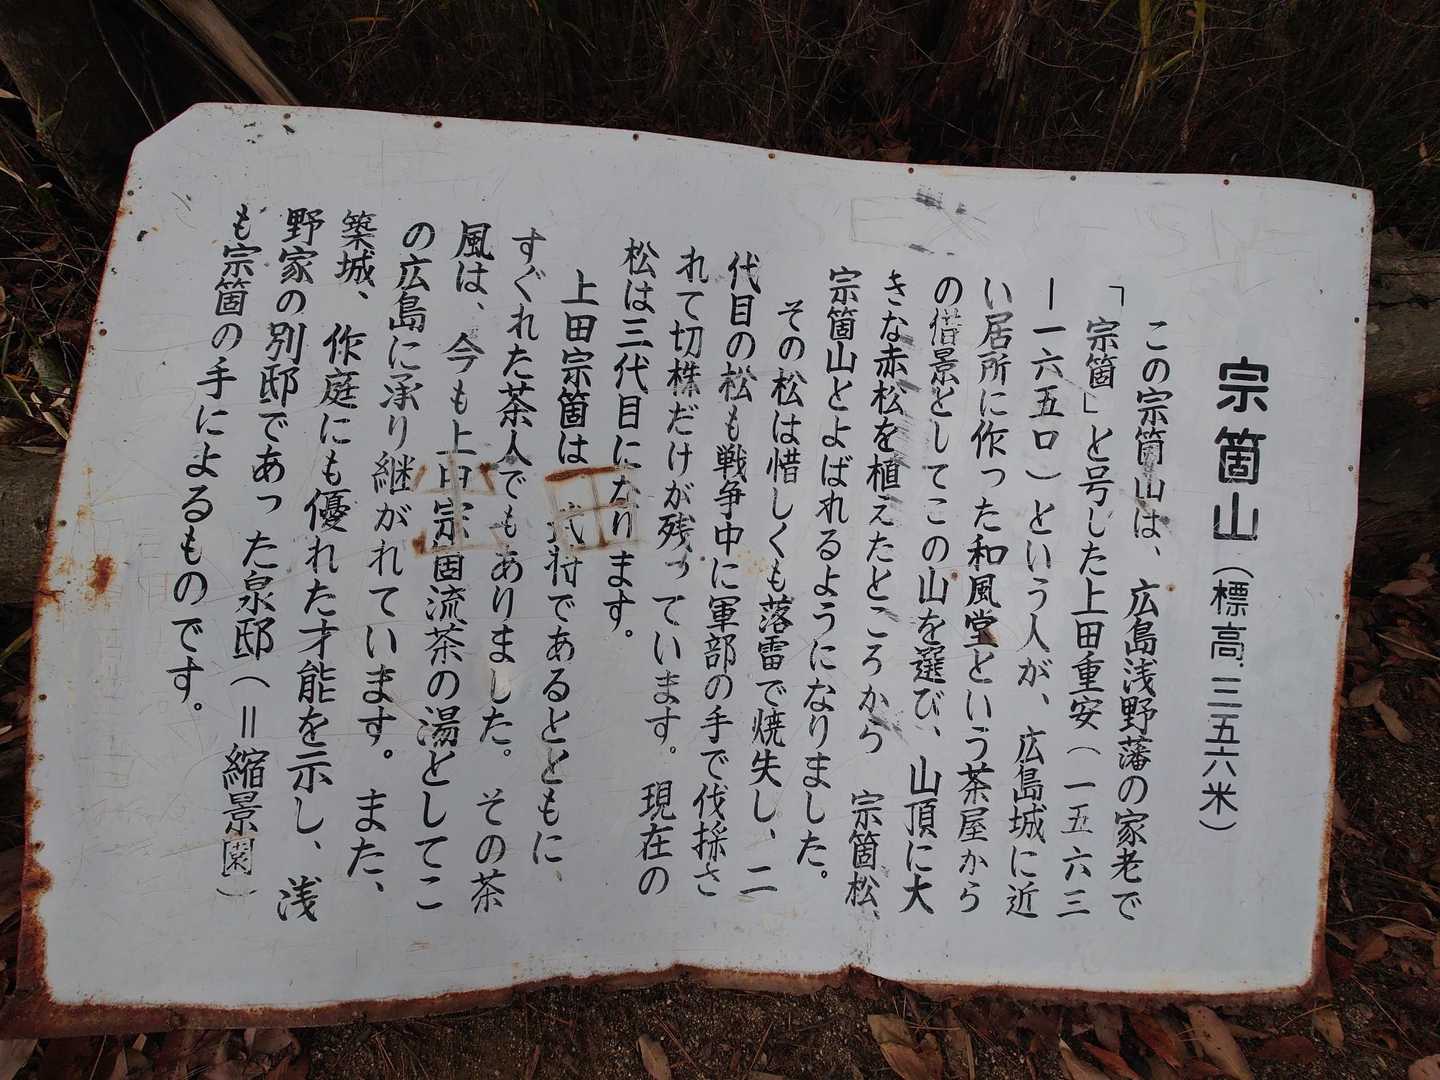 宗箇山(標高 三五六米)
この宗箇山は、広島浅野藩の家老で
「宗箇」と号した上田重安(一五六三
ー一六五ロ)という人が、広島城に近
い居所に作った和風堂という茶屋から
の借景としてこの山を選び、山頂に大
きな赤松を植えたところから 宗箇松、
宗箇山とよばれるようになりました。
その松は惜しくも落雷で焼失し、二
代目の松も戦争中に軍部の手で伐採さ
れて切株だけが残っています。現在の
松は三代目になります。
上田宗箇は 武将であるとともに、
すぐれた茶人でもありました。その茶
風は、今も上田宗箇流茶の湯としてこ
の広島に承り継がれています。また、
築城、作庭にも優れた才能を示し、浅
野家の別邸であった泉邸(=縮景園)
も宗箇の手によるものです。